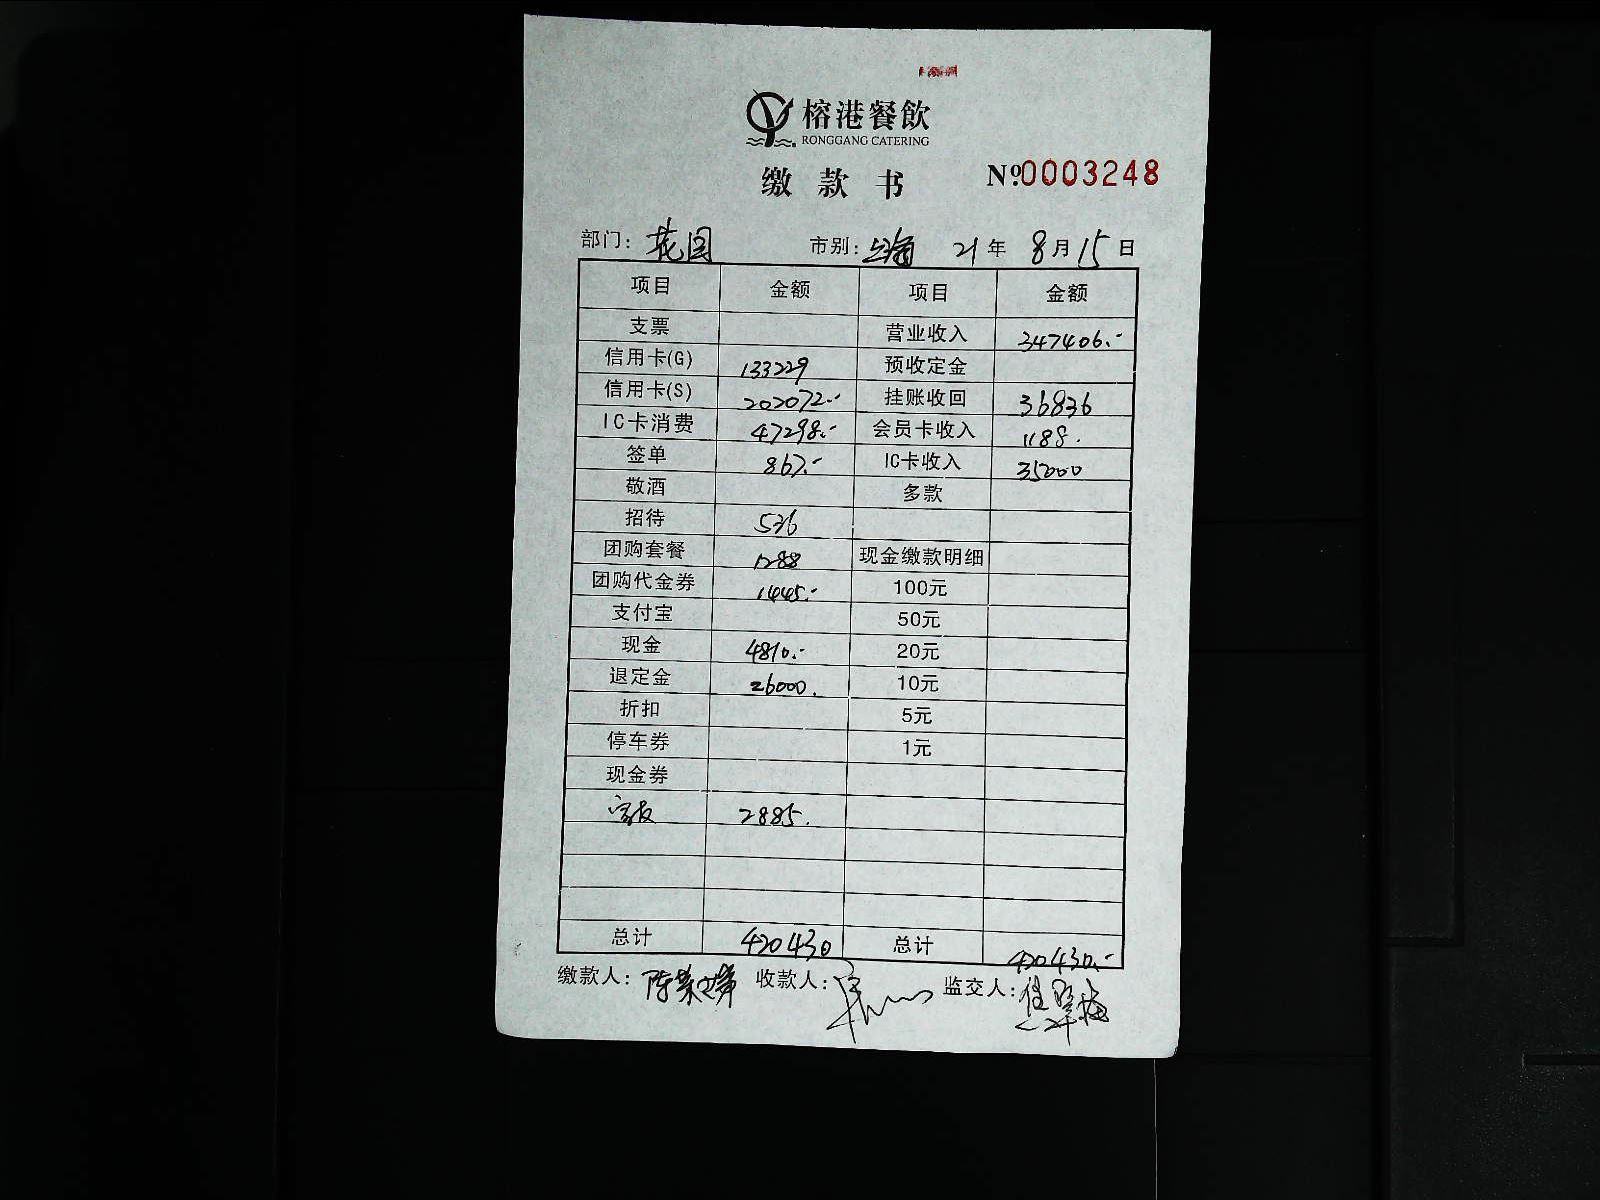 榕港餐飲
RONGGANG CATERING
缴款书 №0003248
部门: 花园 市别: 上海 21年 8月15日
项目 金额 项目 金额
支票 营业收入 347406.-
信用卡(G) 133229 预收定金
信用卡(S) 202072.- 挂账收回 36836
IC卡消费 47298.- 会员卡收入 1188.
签单 867.- IC卡收入 35000
敬酒 多款
招待 536
团购套餐 1288 现金缴款明细
团购代金券 1445.- 100元
支付宝 50元
现金 4810.- 20元
退定金 26000. 10元
折扣 5元
停车券 1元
现金券
2885.
总计 420430 总计 420430.-
缴款人: 陈 收款人: 监交人: